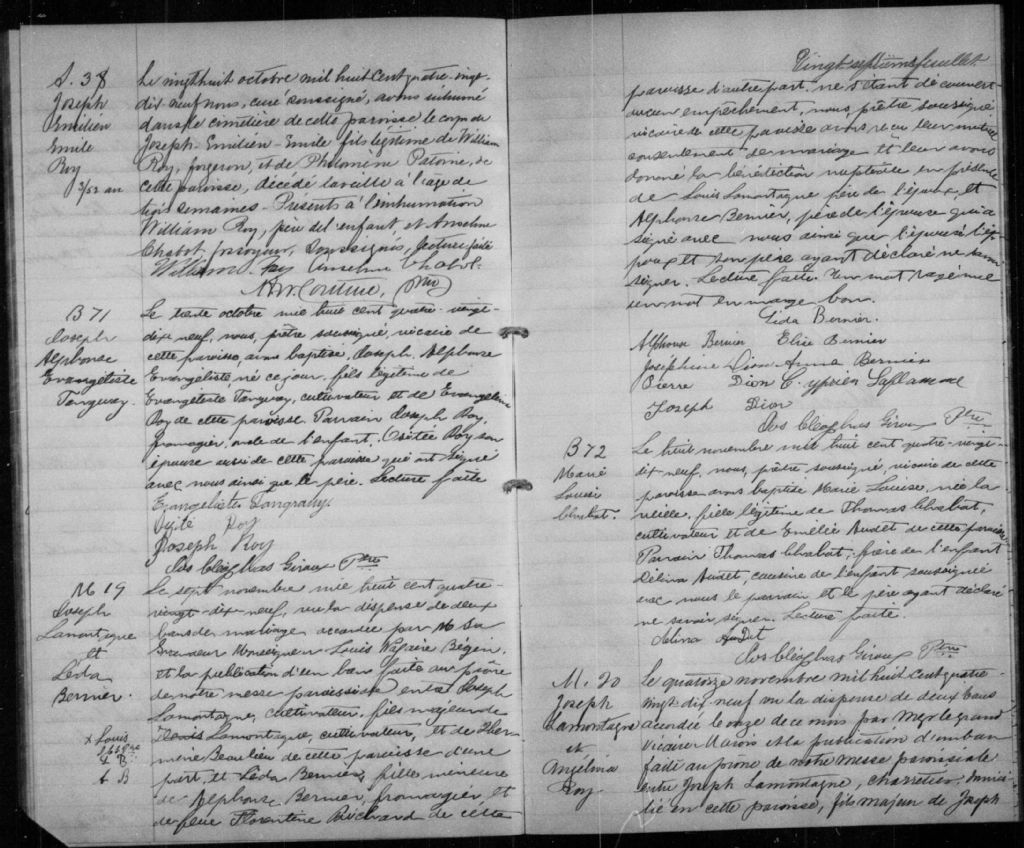 S. 38
Joseph
Emilién
Emile
Roy
3/52 an
Le vingthuit octobre mil huit cent quatre-vingt-
dix neuf nous, curé soussigné, avons inhumé
dans le cimetière de cette paroisse le corps de
Joseph-Emilién-Emile fils légitime de William
Roy, forgeron, et de Philomène Patoine, de
cette paroisse, décédé la veille à l'âge de
trois semaines. Présents à l'inhumation
William Roy, père de l'enfant, et Anselme
Chabot, soussignés, lecture faite
William Roy Anselme Chabot
Ptre
B 71
Joseph
Alphonse
Evangeliste
Tanguay.
Le trente octobre mil huit cent quatre-vingt-
dix neuf, nous, prêtre soussigné, vicaire de
cette paroisse, avons baptisé, Joseph, Alphonse
Evangeliste, né ce jour, fils légitime de
Evangeliste Tanguay, cultivateur et de Evangeline
Roy de cette paroisse. Parrain Joseph Roy,
fromager, oncle de l'enfant, Osité Roy son
épouse aussi de cette paroisse qui ont signé
avec nous ainsi que le père. Lecture faite
Evangeliste Tanguay.
Osité Roy
Joseph Roy
Jos Cléophas Giroux Ptre
M 19
Joseph
Lamontagne
et
Léda
Bernier.
x Louis
+ B
Le sept novembre mil huit cent quatre-
vingt-dix neuf, vu la dispense de deux
bans de mariage accordée par M Sa
Grandeur Monseigneur Louis Nazaire Bégin,
et la publication d'un ban faite au prône
de notre messe paroissiale entre Joseph
Lamontagne, cultivateur, fils majeur de
Lamontagne, cultivateur, et de Her-
mine Beaulieu de cette paroisse d'une
part, et Léda Bernier, fille mineure
de Alphonse Bernier, fromager, et
de feue Florentine de cette
Vingt septième feuillet
paroisse d'autre part, ne s'étant découvert
aucun empêchement, nous, prêtre soussigné
vicaire de cette paroisse avons reçu leur mutuel
consentement de mariage et leur avons
donné la bénédiction nuptiale en présence
de Louis Lamontagne père de l'époux, et
Alphonse Bernier, père de l'épouse qui a
signé avec nous ainsi que l'épouse l'é-
poux et son père ayant déclaré ne savoir
signer. Lecture faite. Un mot rayé nul
un mot en marge bon.
Léda Bernier.
Alphonse Bernier Elise Bernier
Joséphine Dion Anna Bernier
Pierre Dion C. yprien Laflamme
Joseph Dion
Jos Cléophas Giroux Ptre
B 72
Marie
Louise
Chabot.
Le huit novembre mil huit cent quatre-vingt-
dix neuf, nous, prêtre soussigné, vicaire de cette
paroisse avons baptisé Marie Louise, née la
veille, fille légitime de Thomas Chabot,
cultivateur et de Emélie Audet de cette paroisse
Parrain Thomas Chabot, frère de l'enfant
Délina Audet, cousine de l'enfant soussignée
avec nous le parrain et le père ayant déclaré
ne savoir signer. Lecture faite.
Délina AuDet
Jos Cléophas Giroux Ptre
M. 20
Joseph
Lamontagne
et
Angelina
Roy
Le quatorze novembre mil huit cent quatre-
vingt-dix-neuf vu la dispense de deux bans
accordée le onze de ce mois par Mgr le grand
Vicaire Marois et la publication d'un ban
faite au prone de notre messe paroissiale
entre Joseph Lamontagne, charretier, domici-
lié en cette paroisse, fils majeur de Joseph